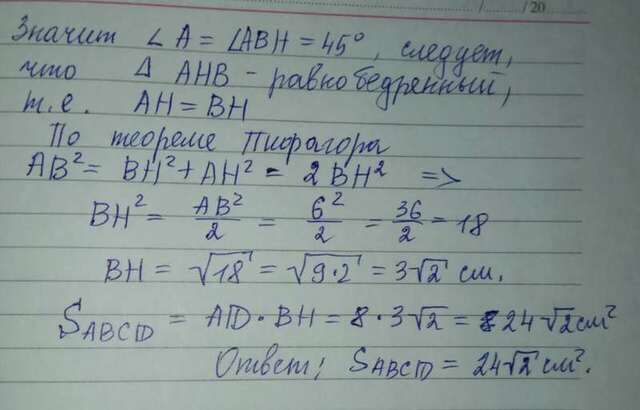 / /20
Значит ∠A = ∠ABH = 45°, следует,
что Δ AHB - равнобедренный,
т.е. AH = BH
По теореме Пифагора
AB² = BH² + AH² = 2BH² =>
BH² = AB²/2 = 6²/2 = 36/2 = 18
BH = √18 = √9·2 = 3√2 см.
S_ABCD = AD · BH = 8 · 3√2 = 24√2 см²
Ответ: S_ABCD = 24√2 см².